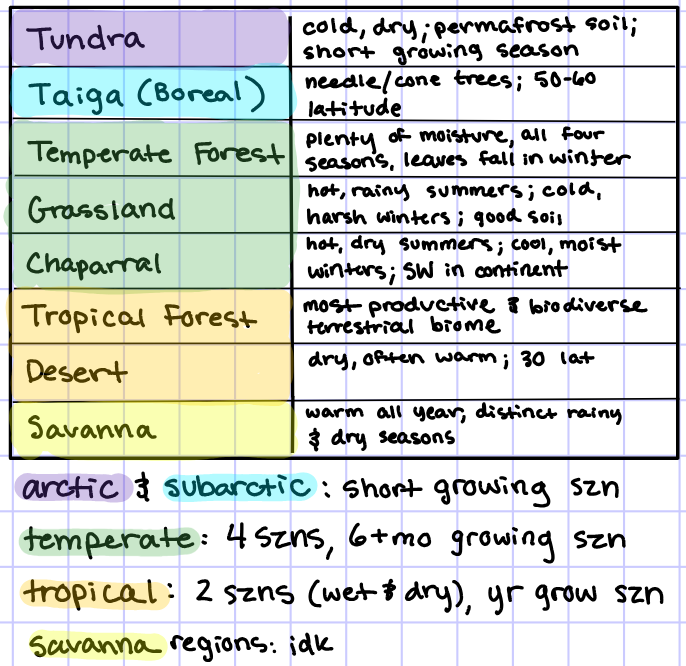 Tundra
cold, dry; permafrost soil;
short growing season
Taiga (Boreal)
needle/cone trees; 50-60
latitude
Temperate Forest
plenty of moisture, all four
seasons, leaves fall in winter
Grassland
hot, rainy summers; cold,
harsh winters; good soil
Chaparral
hot, dry summers; cool, moist
winters; SW in continent
Tropical Forest
most productive & biodiverse
terrestrial biome
Desert
dry, often warm; 30 lat
Savanna
warm all year, distinct rainy
& dry seasons
arctic & subarctic: short growing szn
temperate: 4 szns, 6+mo growing szn
tropical: 2 szns (wet & dry), yr grow szn
savanna regions: idk